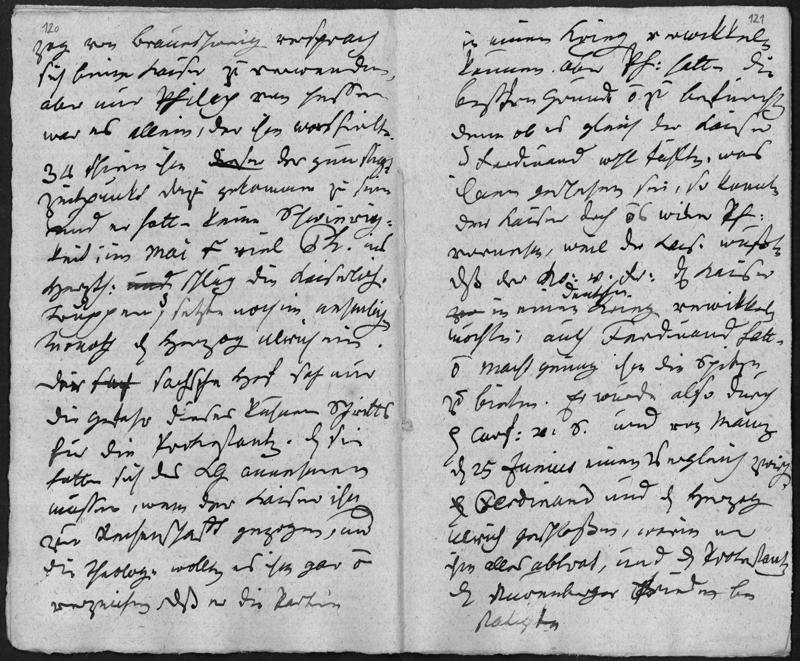 120
zog von Braunschweig versprach
sich beim Kaiser zu verwenden,
aber nur Philipp von Hessen
war es allein, der ihm
34 schien ihm dieser der günstige
Zeitpunkt dazu gekommen zu sein
und er hatte keine Schwierig-
keit; im Mai viel Ph. ins
Herzth: und schlug die Kaiserlich.
Truppen, setzte noch im
Monath d Herzog Ulrich ein.
Der sachsische Hof sah nur
die Gefahr dieses kühnen Schritts
für die Protestanten. d sie
hatten sich des LG annehmen
müssen, wenn der Kaiser ihn
zur Rechenschaft gezogen, und
die Theologen wollten es ihm gar
verzeihen, dß er die Parthie
121
in einen Krieg verwikkeln
können. aber Ph: hatte die
besten Gründe zu befürcht
denn ob es gleich der Kaiser
Ferdinand wohl was
ihnen geschehen sei, so konnte
der Kaiser doch wider Ph:
vornehm, weil der Kais. wußte
dß der Kö: v. Fr: d Kaiser
deutschen
in einen Krieg verwikkeln
möchte; auch Ferdinand hatte
Macht genug ihm die Spitze
zu bieten. Es wurde also durch
d Curf: v. S. und von Mainz
d 25 Junius einen Vergleich zwisch
Ferdinand und d Herzog
Ulrich geschloßen, worin er
ihm alles abtrat, und d Protestant
d Nurenberger Frieden be
statigte